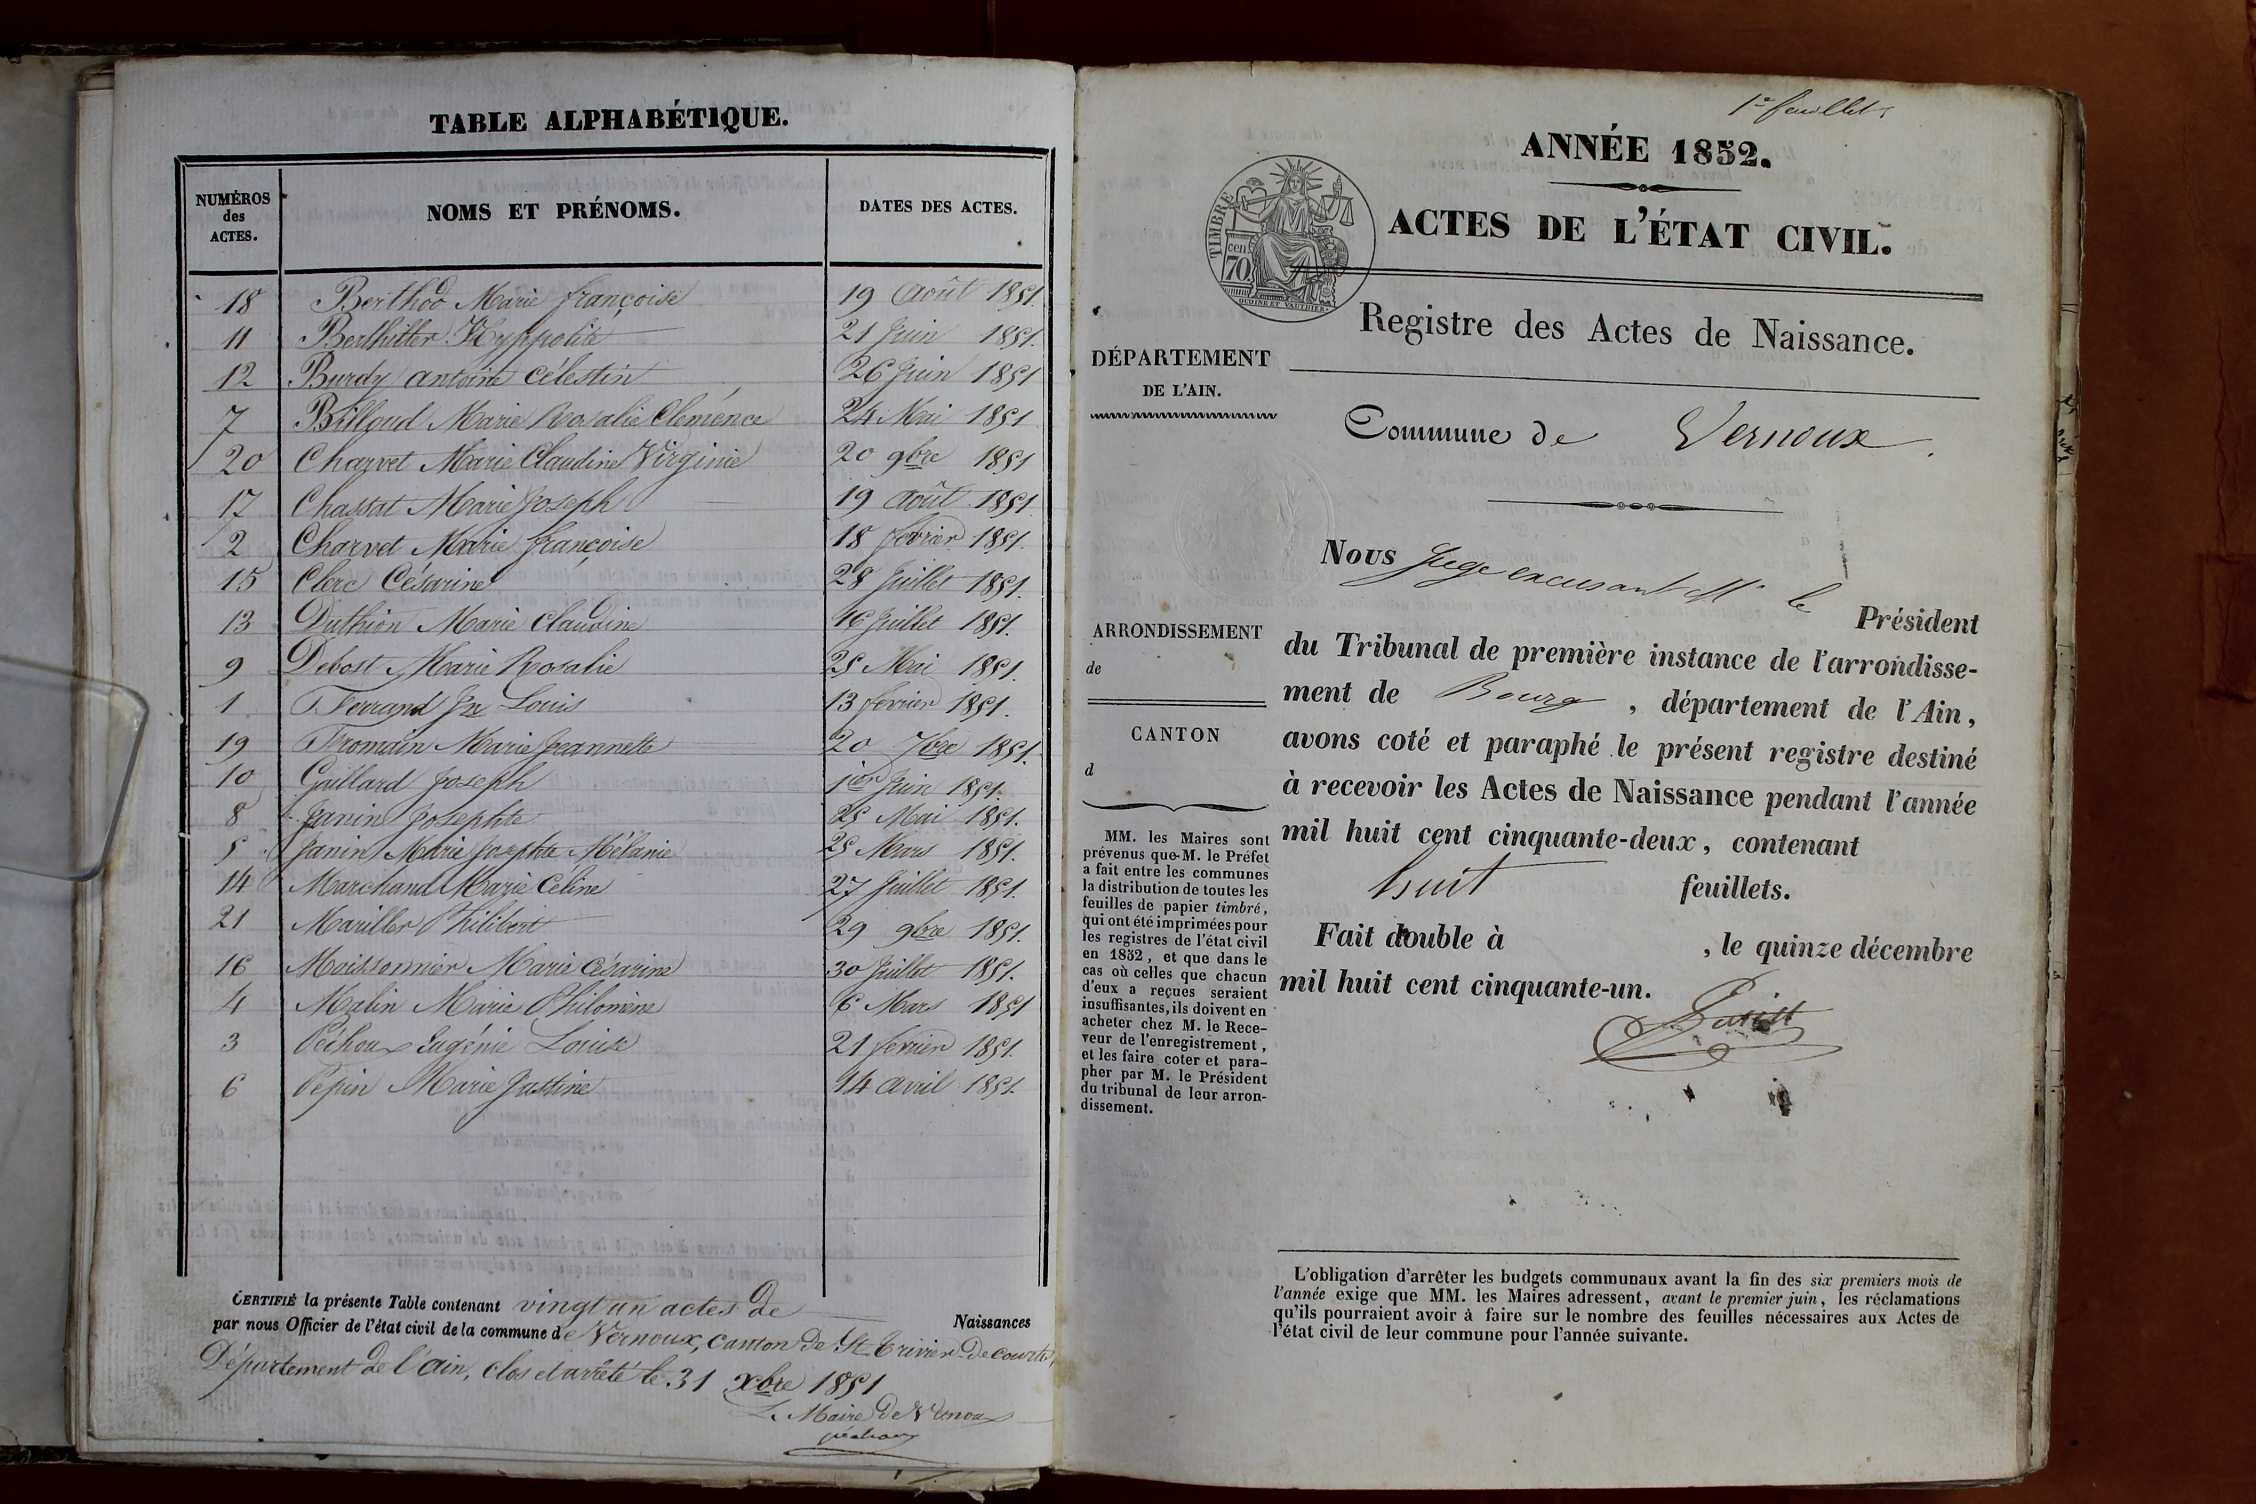 TABLE ALPHABÉTIQUE.
NUMÉROS des ACTES. NOMS ET PRÉNOMS. DATES DES ACTES.
18 Berthod Marie françoise 19 Août 1851.
11 Berthiller Hyppolite 21 Juin 1851.
12 Burdy antoine Célestin 26 Juin 1851
7 Billoud Marie Rosalie Clémence 24 Mai 1851
20 Charvet Marie Claudine Virginie 20 9bre 1851
17 Chassat Marie Joseph 19 Août 1851
2 Charvet Marie françoise 18 février 1851.
15 Clerc Césarine 28 Juillet 1851.
13 Duthion Marie Claudine 16 Juillet 1851.
9 Debost Marie Rosalie 25 Mai 1851.
1 Ferrand Jn Louis 13 février 1851.
19 Fromain Marie Jeannette 20 7bre 1851.
10 Gaillard Joseph 1ier Juin 1851.
8 Janin Josephte 25 Mai 1851.
5 Janin Marie Josephte Mélanie 25 Mars 1851.
14 Marchand Marie Céline 27 Juillet 1851.
21 Mariller Philibert 29 9bre 1851.
16 Moissonnier Marie Césarine 30 Juillet 1851.
4 Malin Marie Philomène 6 Mars 1851
3 Péchoux Eugénie Louise 21 février 1851.
6 Pépin Marie Justine 14 avril 1851.
CERTIFIÉ la présente Table contenant vingt un actes de Naissances
par nous Officier de l'état civil de la commune de Vernoux, canton de St Trivier-de-courtes,
Département de l'ain, clos et arrêté le 31 xbre 1851
Le Maire de Vernoux
péchoux
1er feuillet
ANNÉE 1852.
ACTES DE L'ÉTAT CIVIL.
TIMBRE
70 cen
OUDINE ET VAUTHIER
Registre des Actes de Naissance.
DÉPARTEMENT
DE L'AIN.
Commune de Vernoux.
ARRONDISSEMENT
de
CANTON
d
MM. les Maires sont
prévenus que M. le Préfet
a fait entre les communes
la distribution de toutes les
feuilles de papier timbré,
qui ont été imprimées pour
les registres de l'état civil
en 1852, et que dans le
cas où celles que chacun
d'eux a reçues seraient
insuffisantes, ils doivent en
acheter chez M. le Rece-
veur de l'enregistrement,
et les faire coter et para-
pher par M. le Président
du tribunal de leur arron-
dissement.
Nous Juge excusant Mr le Président
du Tribunal de première instance de l'arrondisse-
ment de Bourg, département de l'Ain,
avons coté et paraphé le présent registre destiné
à recevoir les Actes de Naissance pendant l'année
mil huit cent cinquante-deux, contenant
huit feuillets.
Fait double à , le quinze décembre
mil huit cent cinquante-un.
L'obligation d'arrêter les budgets communaux avant la fin des six premiers mois de
l'année exige que MM. les Maires adressent, avant le premier juin, les réclamations
qu'ils pourraient avoir à faire sur le nombre des feuilles nécessaires aux Actes de
l'état civil de leur commune pour l'année suivante.